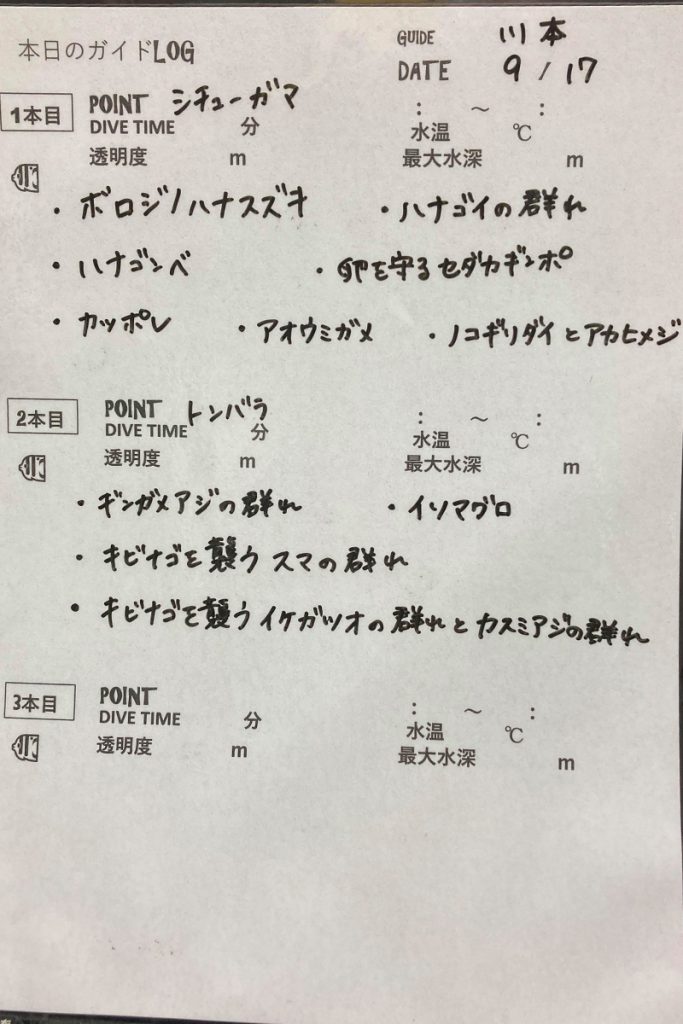 本日のガイドLOG
GUIDE 川本
DATE 9/17
1本目 POINT シチューガマ : ～ :
DIVE TIME 分 水温 ℃
透明度 m 最大水深 m
・ボロジノハナスズキ ・ハナゴイの群れ
・ハナゴンベ ・卵を守るセダカギンポ
・カッポレ ・アオウミガメ ・ノコギリダイとアカヒメジ
2本目 POINT トンバラ : ～ :
DIVE TIME 分 水温 ℃
透明度 m 最大水深 m
・ギンガメアジの群れ ・イソマグロ
・キビナゴを襲うスマの群れ
・キビナゴを襲うイケガツオの群れとカスミアジの群れ
3本目 POINT : ～ :
DIVE TIME 分 水温 ℃
透明度 m 最大水深 m